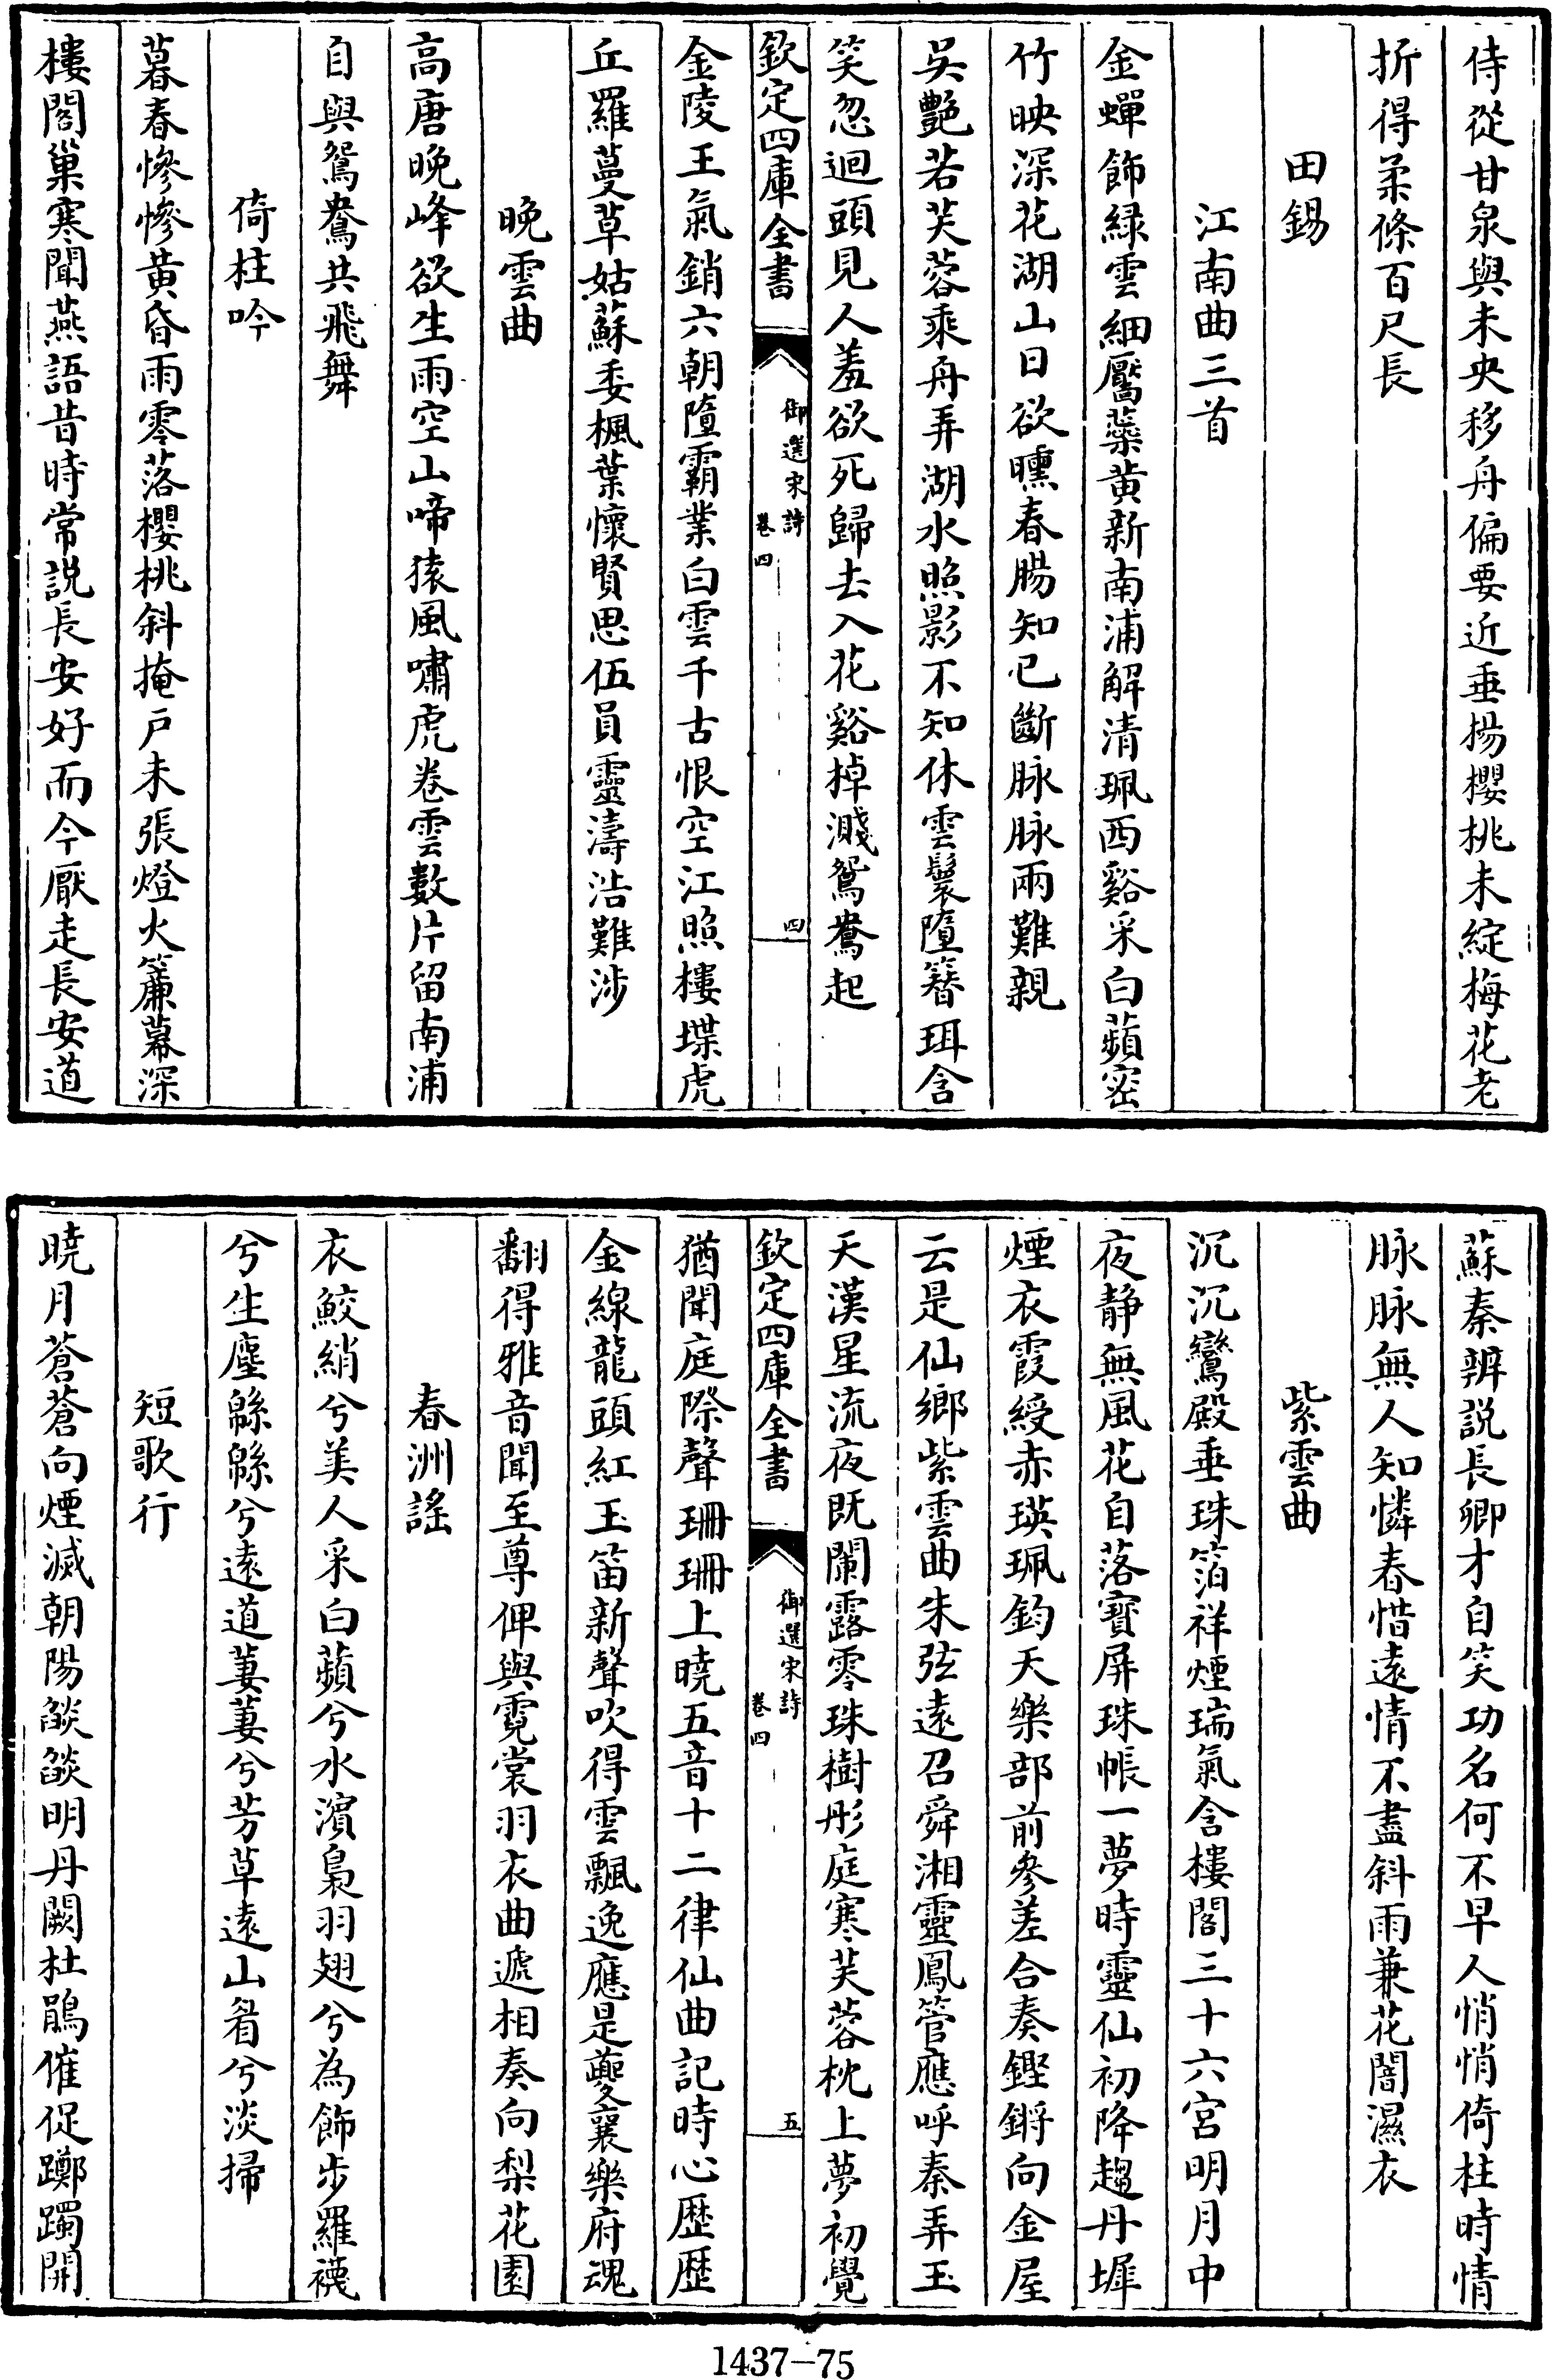 侍從甘泉與未央移舟偏要近垂揚櫻桃未綻梅花老
折得柔條百尺長
田錫
江南曲三首
金蟬飾緑雲細靨蘂黄新南浦解清珮西谿采白蘋密
竹映深花湖山日欲曛春腸知已斷脉脉兩難親
吳艷若芙蓉乘舟弄湖水照影不知休雲鬟墮簪珥含
笑忽迴頭見人羞欲死歸去入花谿棹濺鴛鴦起
欽定四庫全書
御選宋詩
卷四
四
金陵王氣銷六朝隳霸業白雲千古恨空江照樓堞虎
丘羅蔓草姑蘇委楓葉懷賢思伍員靈濤浩難涉
晚雲曲
高唐晚峰欲生雨空山啼猿風嘯虎卷雲數片留南浦
自與鴛鴦共飛舞
倚柱吟
暮春慘慘黄昏雨零落櫻桃斜掩戸未張燈火簾幕深
樓閣巢寒聞燕語昔時常説長安好而今厭走長安道
蘇秦辨説長卿才自笑功名何不早人悄悄倚柱時情
脉脉無人知憐春惜遠情不盡斜雨兼花闇濕衣
紫雲曲
沉沉鸞殿垂珠箔祥煙瑞氣含樓閣三十六宮明月中
夜静無風花自落寳屏珠帳一夢時靈仙初降趨丹墀
煙衣霞綬赤瑛珮鈞天樂部前參差合奏鏗鏘向金屋
云是仙鄉紫雲曲朱弦遠召舜湘靈鳳管應呼秦弄玉
天漢星流夜既闌露零珠樹彤庭寒芙蓉枕上夢初覺
欽定四庫全書
御選宋詩
卷四
五
猶聞庭際聲珊珊上曉五音十二律仙曲記時心歴歴
金線龍頭紅玉笛新聲吹得雲飄逸應是夔襄樂府魂
翻得雅音聞至尊俾與霓裳羽衣曲遞相奏向梨花園
春洲謠
衣鮫綃兮美人采白蘋兮水濱裊羽翅兮為飾步羅襪
兮生塵緜緜兮遠道萋萋兮芳草遠山眉兮淡掃
短歌行
曉月蒼蒼向煙滅朝陽燄燄明丹闕杜鵑催促躑躅開
1437—75